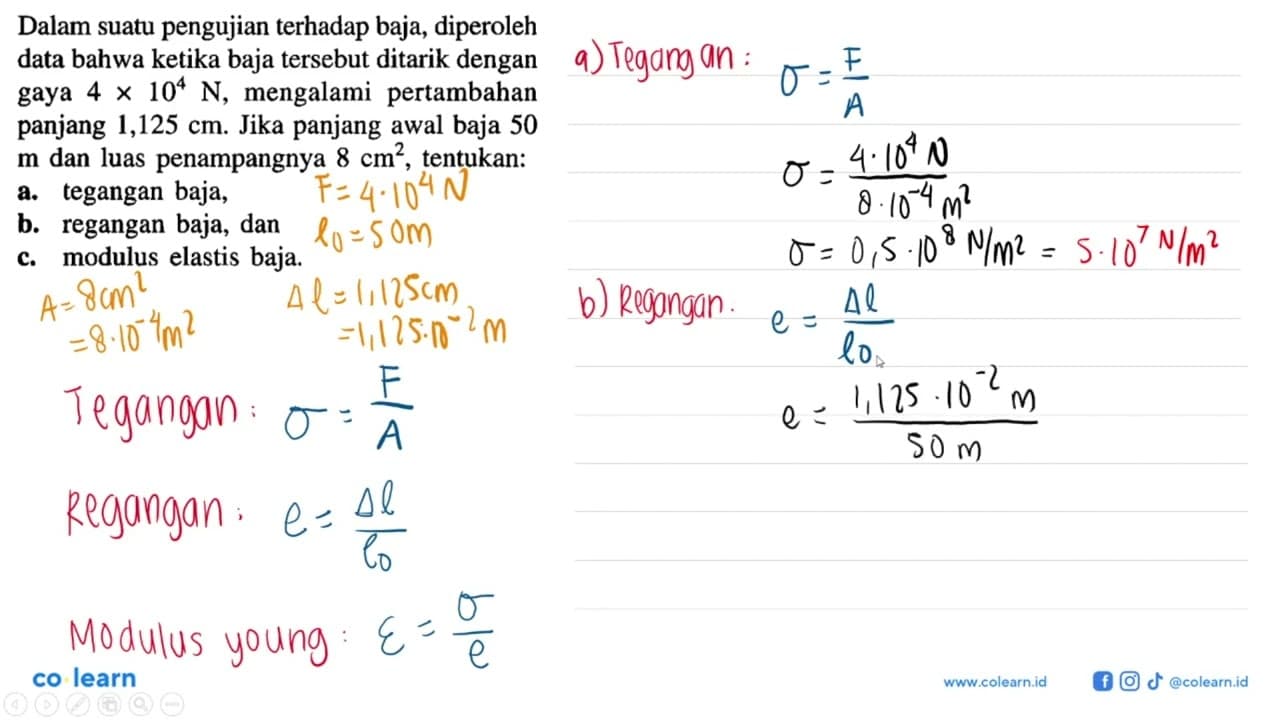 Dalam suatu pengujian terhadap baja, diperoleh
data bahwa ketika baja tersebut ditarik dengan
gaya 4 × 10⁴ N, mengalami pertambahan
panjang 1,125 cm. Jika panjang awal baja 50
m dan luas penampangnya 8 cm², tentukan:
a. tegangan baja,
b. regangan baja, dan
c. modulus elastis baja.
F = 4·10⁴ N
l₀ = 50m
A = 8cm²
= 8·10⁻⁴m²
Δl = 1,125cm
= 1,125·10⁻² m
Tegangan : σ = F/A
Regangan : e = Δl/l₀
Modulus young : ε = σ/e
a) Tegangan : σ = F/A
σ = 4·10⁴ N / 8·10⁻⁴ m²
σ = 0,5·10⁸ N/m² = 5·10⁷ N/m²
b) Regangan. e = Δl/l₀
e = 1,125·10⁻² m / 50 m
co learn
www.colearn.id
@colearn.id